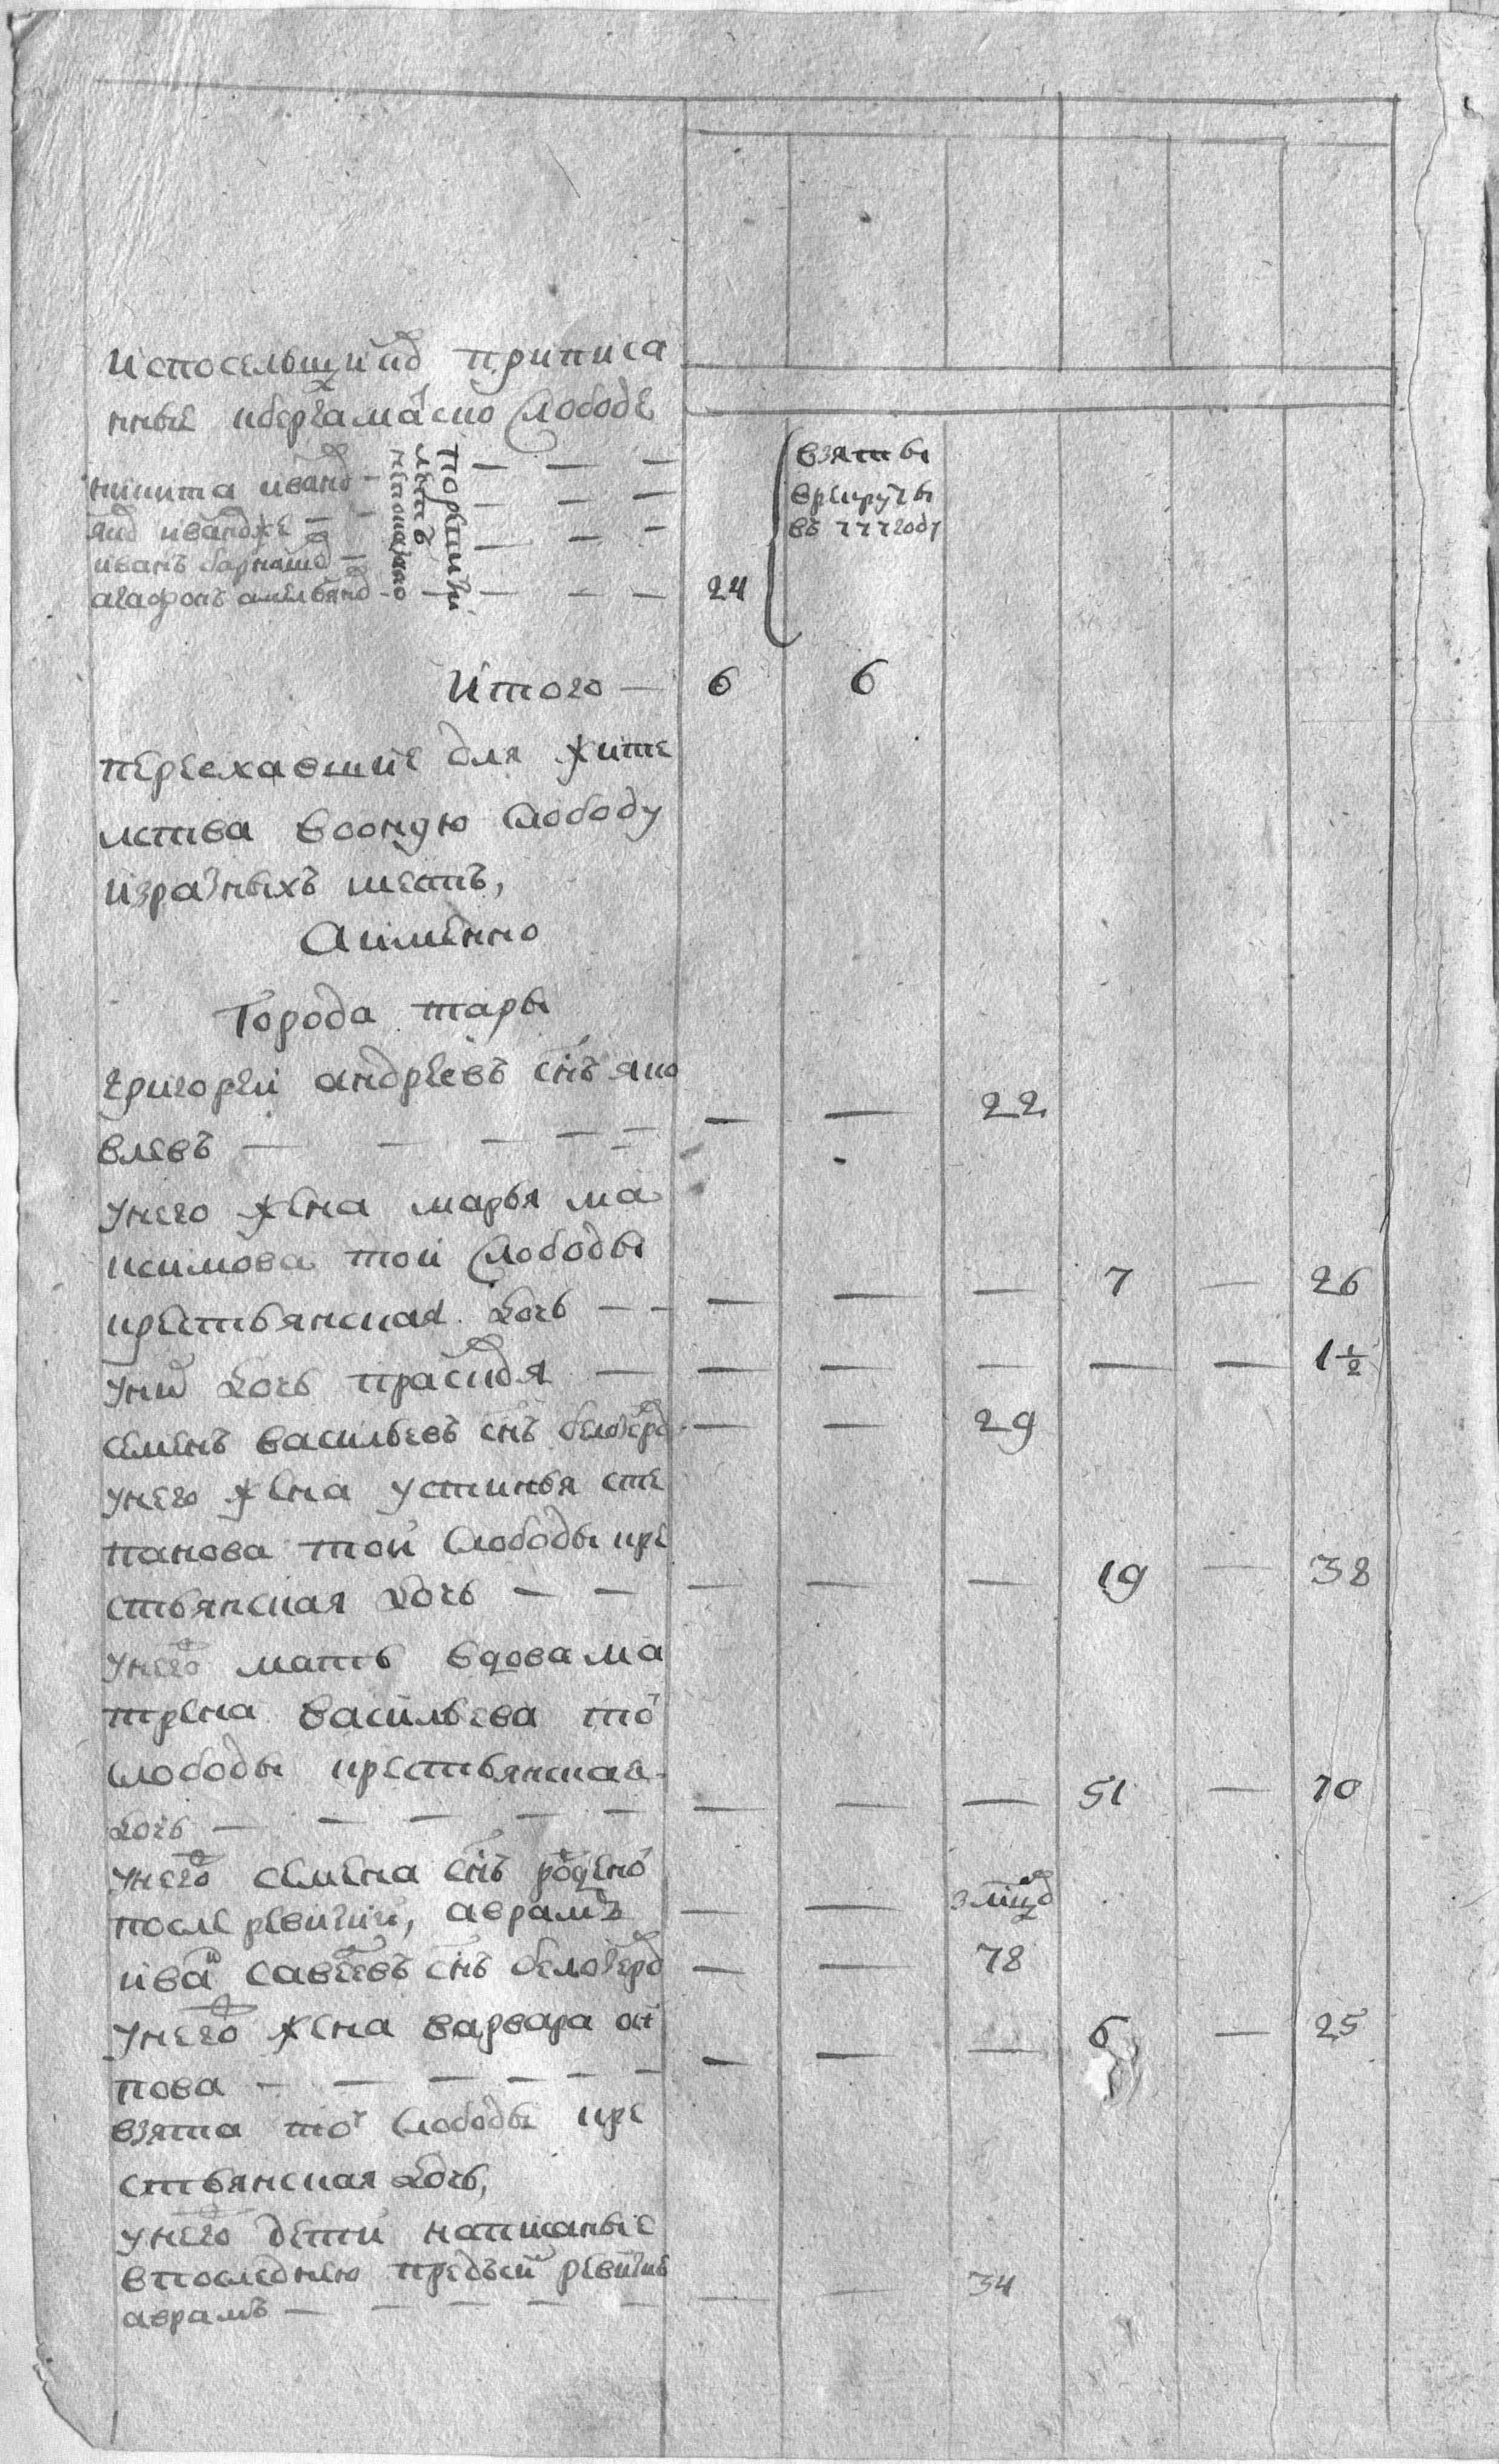 Ис посельщиков приписа
нные к бергаматско слободе
никита иванов — — — —
яков иванов же — — — —
иванъ барнашов — — — —
агафонъ амельянов — — — — 24
по ревизки
летъ
не показано
взяты
в рекруты
въ 777 году
Итого — 6 6
переехавшие для жите
лства в оную слободу
из разныхъ местъ,
А имянно
Города тары
григореи андреевъ снъ яко
влевъ — — — — — — — 22
у него жена марья ма
ксимова тои слободы
крестьянская дочь — — — — — 7 — 26
у них дочь прасковя — — — — — — 1½
семенъ васильевъ снъ белозеров — — 29
у него жена устинья сте
панова тои слободы кре
стьянская дочь — — — — — 19 — 38
у него мать вдова ма
трена васильева то
слободы крестьянская
дочь — — — — — — — — 51 — 70
у него семена снъ рожденой
после ревизии, аврамъ — — 3 мсцов
иван савеевъ снъ белозеров — — 78
у него жена варвара
пова — — — — — — — — — 6 — 25
взята то слободы кре
стьянская дочь,
у него дети написаные
в последнею пред сеи ревизие
аврамъ — — — — — — — 34